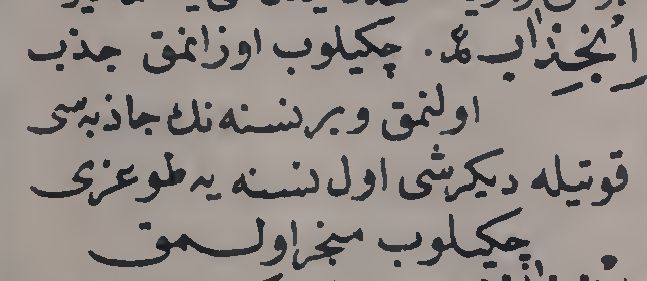 اِنْجِذَاب عر. چكيلوب اوزانمق جذب
اولنمق وبر نسنه نك جاذبه سی
قوتيله ديكر شی اول نسنه يه طوغری
چكيلوب منجر اولمق